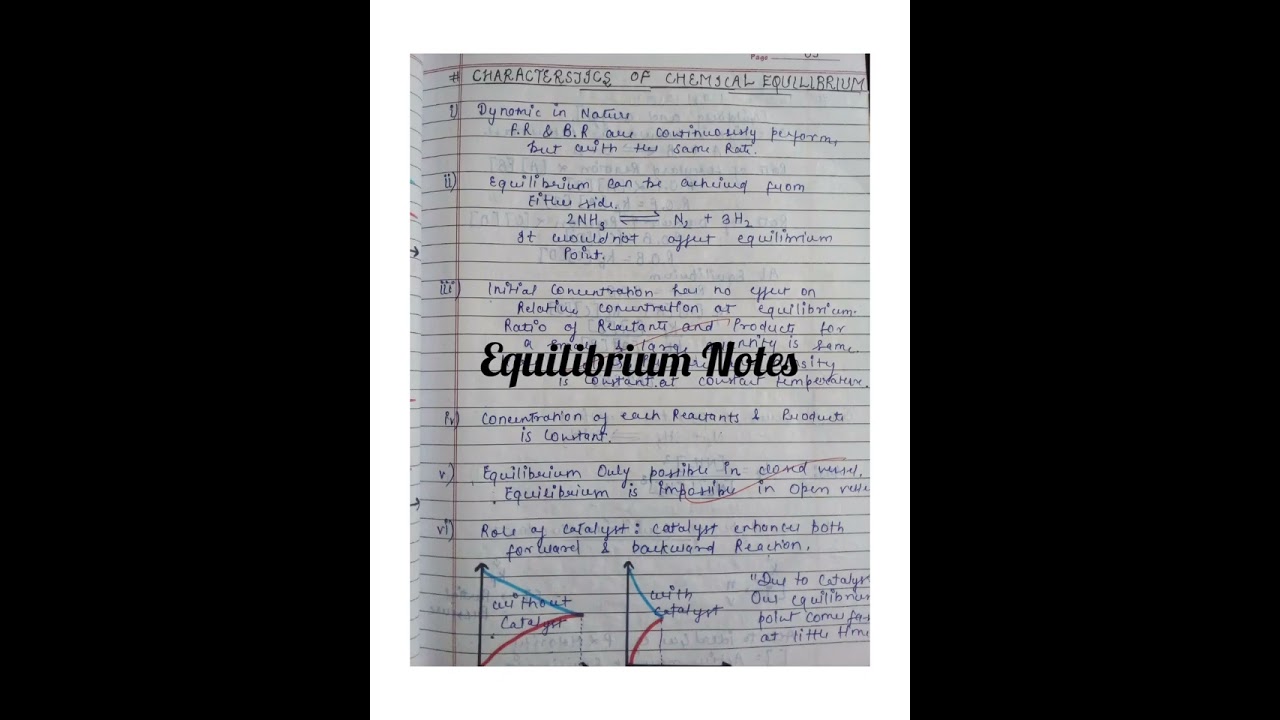 Page 05
# CHARACTERSTICS OF CHEMICAL EQUILIBRIUM
i) Dynomic in Nature
F.R & B.R are continuously perform,
but with the same Rate.
ii) Equilibrium can be acheing from
Either side.
2NH3 ⇌ N2 + 3H2
It would not affect equilibrium
Point.
iii) Initial Concentration has no effect on
Relative concentration at equilibrium.
Ratio of Reactants and Products for
a is same.
Equilibrium Notes
is constant at constant temperature.
iv) Concentration of each Reactants & Products
is Constant.
v) Equilibrium Only possible in closed vessel.
Equilibrium is impossible in open
vi) Role of Catalyst: Catalyst enhances both
forward & backward Reaction.
without
Catalyst
with
Catalyst
"Due to Catalys
Our equilibriu
point come fas
at little time